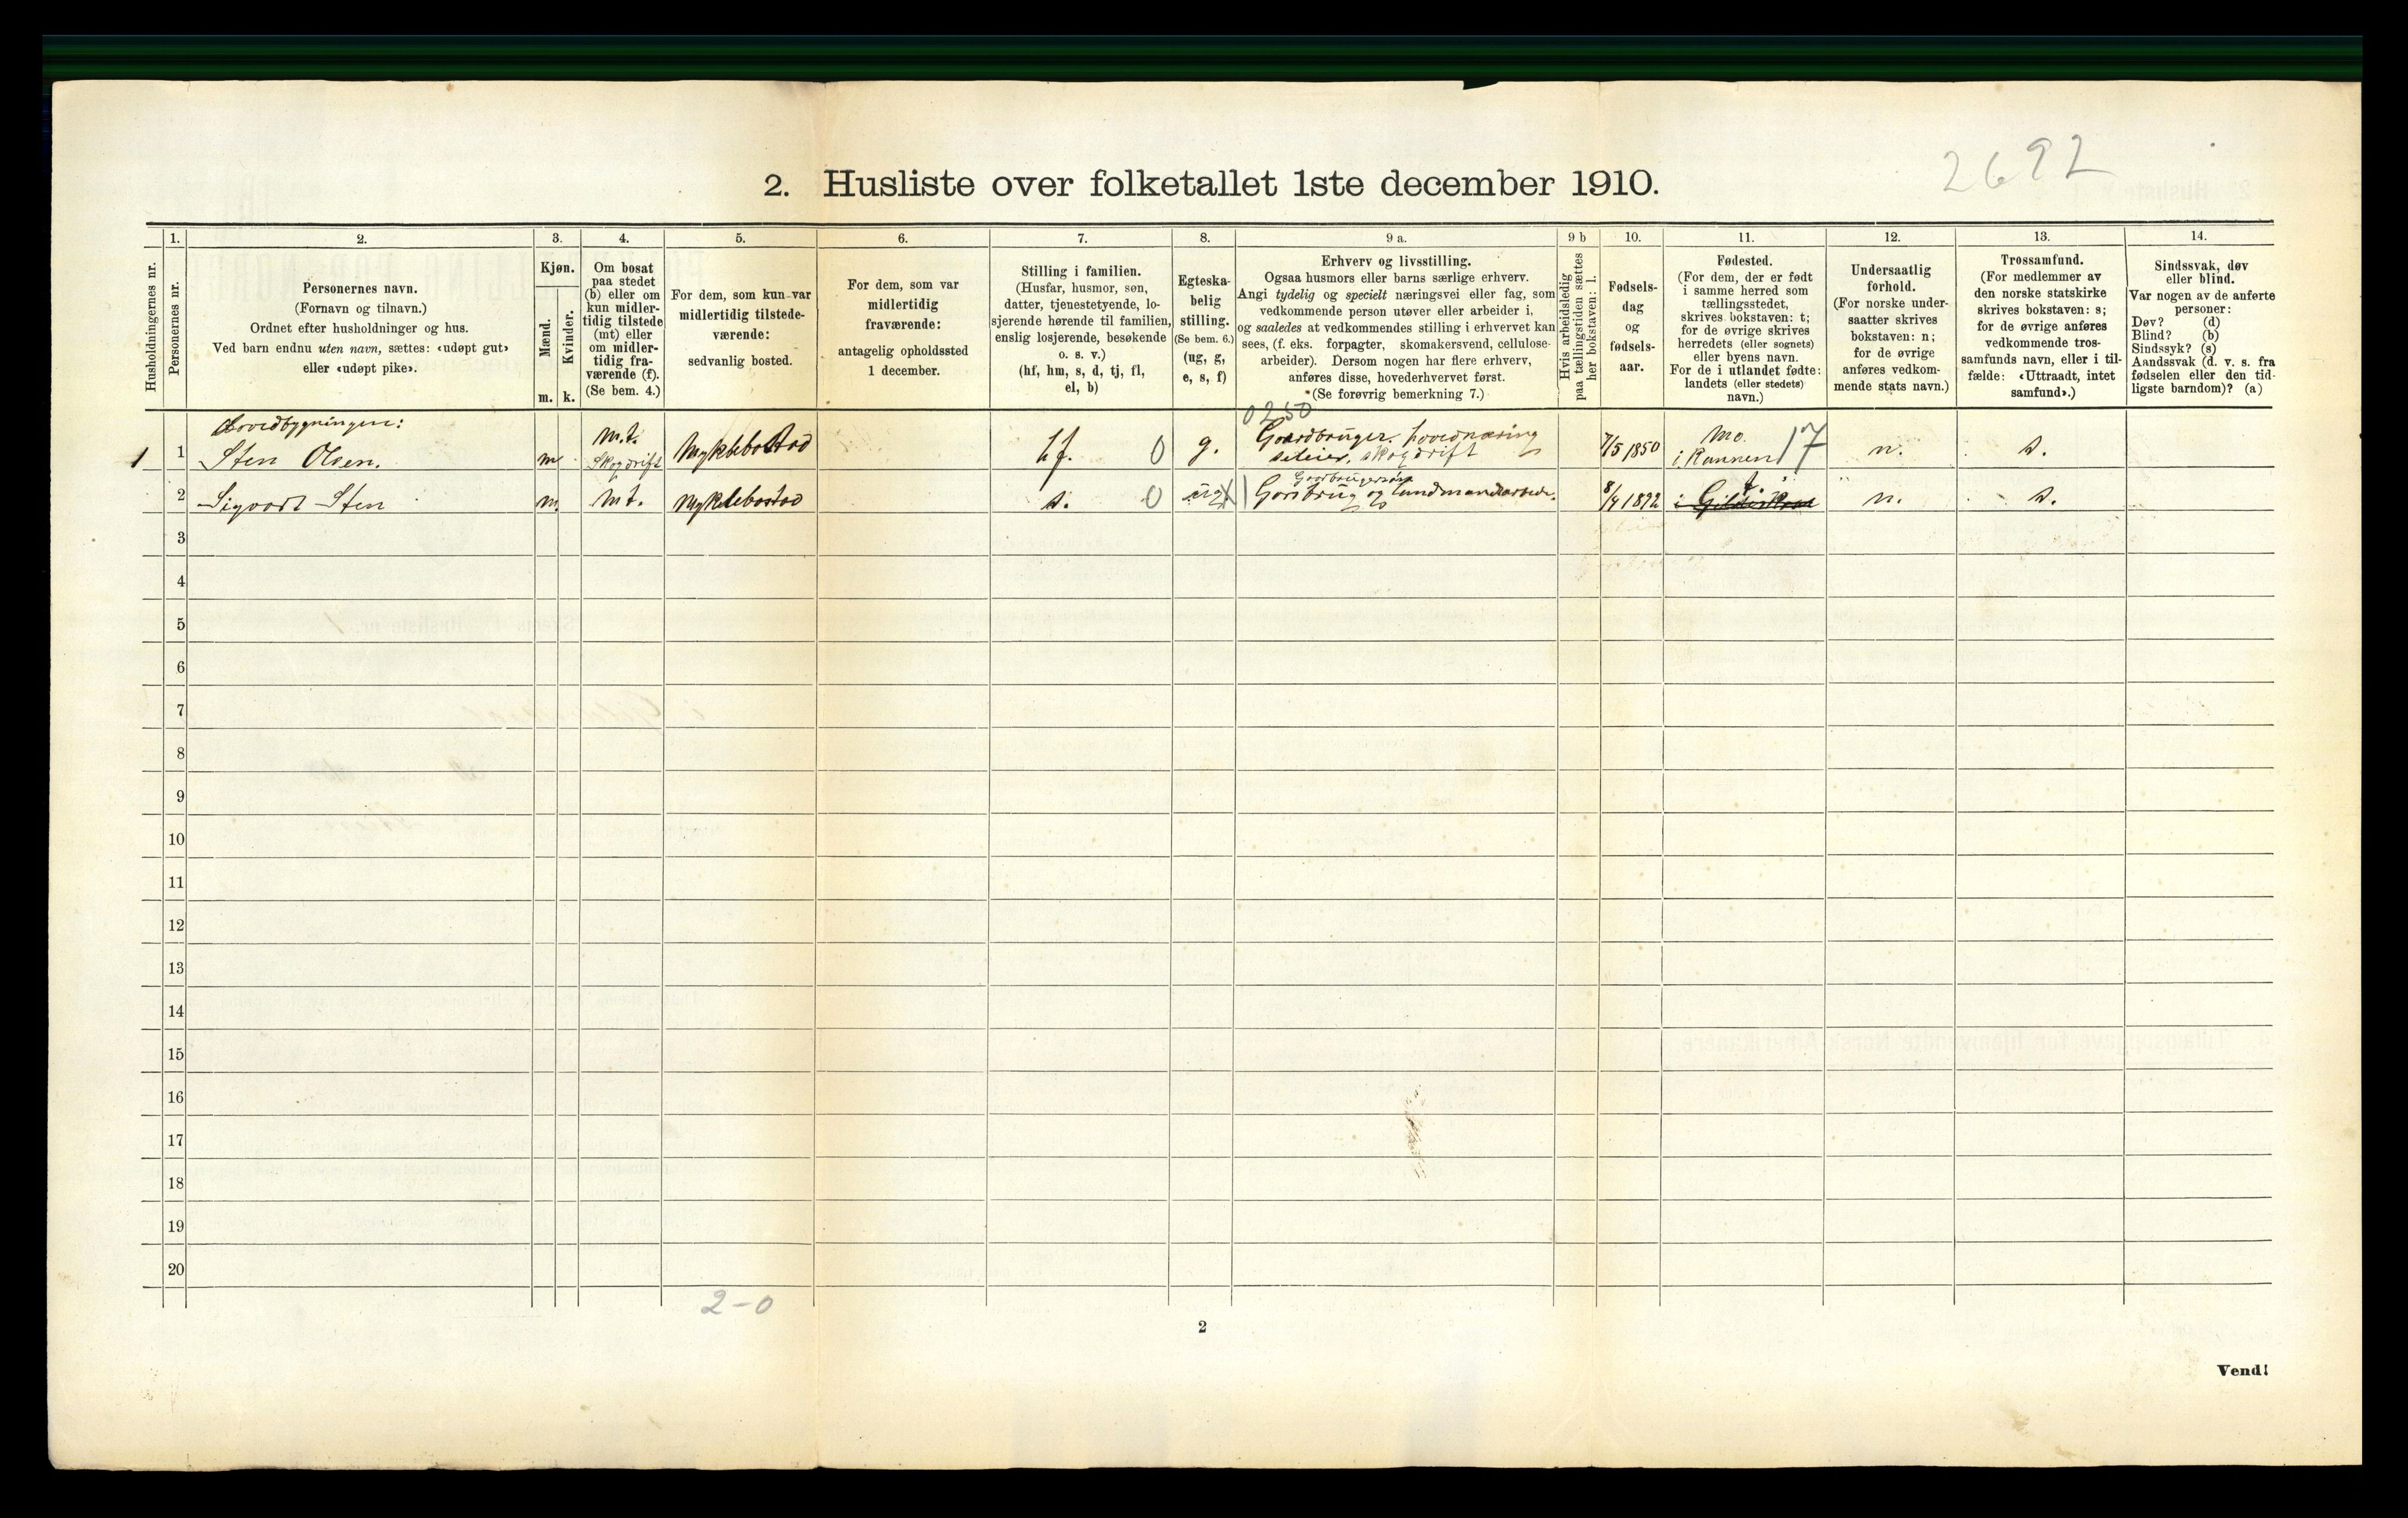 2692
2. Husliste over folketallet 1ste december 1910.
1. 2. 3. 4. 5. 6. 7. 8. 9 a. 9 b 10. 11. 12. 13. 14.
Husholdningernes nr.
Personernes nr.
Personernes navn.
(Fornavn og tilnavn.)
Ordnet efter husholdninger og hus.
Ved barn endnu uten navn, sættes: «udøpt gut»
eller «udøpt pike».
Kjøn.
Mænd.
Kvinder.
m. k.
Om bosat
paa stedet
(b) eller om
kun midler-
tidig tilstede
(mt) eller
om midler-
tidig fra-
værende (f).
(Se bem. 4.)
For dem, som kun var
midlertidig tilstede-
værende:
sedvanlig bosted.
For dem, som var
midlertidig
fraværende:
antagelig opholdssted
1 december.
Stilling i familien.
(Husfar, husmor, søn,
datter, tjenestetyende, lo-
sjerende hørende til familien,
enslig losjerende, besøkende
o. s. v.)
(hf, hm, s, d, tj, fl,
el, b)
Egteska-
belig
stilling.
(Se bem. 6.)
(ug, g,
e, s, f)
Erhverv og livsstilling.
Ogsaa husmors eller barns særlige erhverv.
Angi tydelig og specielt næringsvei eller fag, som
vedkommende person utøver eller arbeider i,
og saaledes at vedkommendes stilling i erhvervet kan
sees, (f. eks. forpagter, skomakersvend, cellulose-
arbeider). Dersom nogen har flere erhverv,
anføres disse, hovederhvervet først.
(Se forøvrig bemerkning 7.)
Hvis arbeidsledig
paa tællingstiden sættes
her bokstaven: l.
Fødsels-
dag
og
fødsels-
aar.
Fødested.
(For dem, der er født
i samme herred som
tællingsstedet,
skrives bokstaven: t;
for de øvrige skrives
herredets (eller sognets)
eller byens navn.
For de i utlandet fødte:
landets (eller stedets)
navn.)
Undersaatlig
forhold.
(For norske under-
saatter skrives
bokstaven: n;
for de øvrige
anføres vedkom-
mende stats navn.)
Trossamfund.
(For medlemmer av
den norske statskirke
skrives bokstaven: s;
for de øvrige anføres
vedkommende tros-
samfunds navn, eller i til-
fælde: «Uttraadt, intet
samfund».)
Sindssvak, døv
eller blind.
Var nogen av de anførte
personer:
Døv? (d)
Blind? (b)
Sindssyk? (s)
Aandssvak (d. v. s. fra
fødselen eller den tid-
ligste barndom)? (a)
Hovedbygningen: m.t. 0250 Gaardbruger. hovednæring Mo.
1 1 Sten Olsen. m. Skogdrift Myklebostad hf. 0 g. seleier, skogdrift 7/5 1850 i Rannen 17 n. s.
Gardbrugersøn t.
2 Sigvart Sten m. mt. Myklebostad s. 0 ug Garsbrug og landmandsarbeide. 8/4 1892 i Gildeskaal n. s.
3
4
5
6
7
8
9
10
11
12
13
14
15
16
17
18
19
20
2-0
2
Vend!